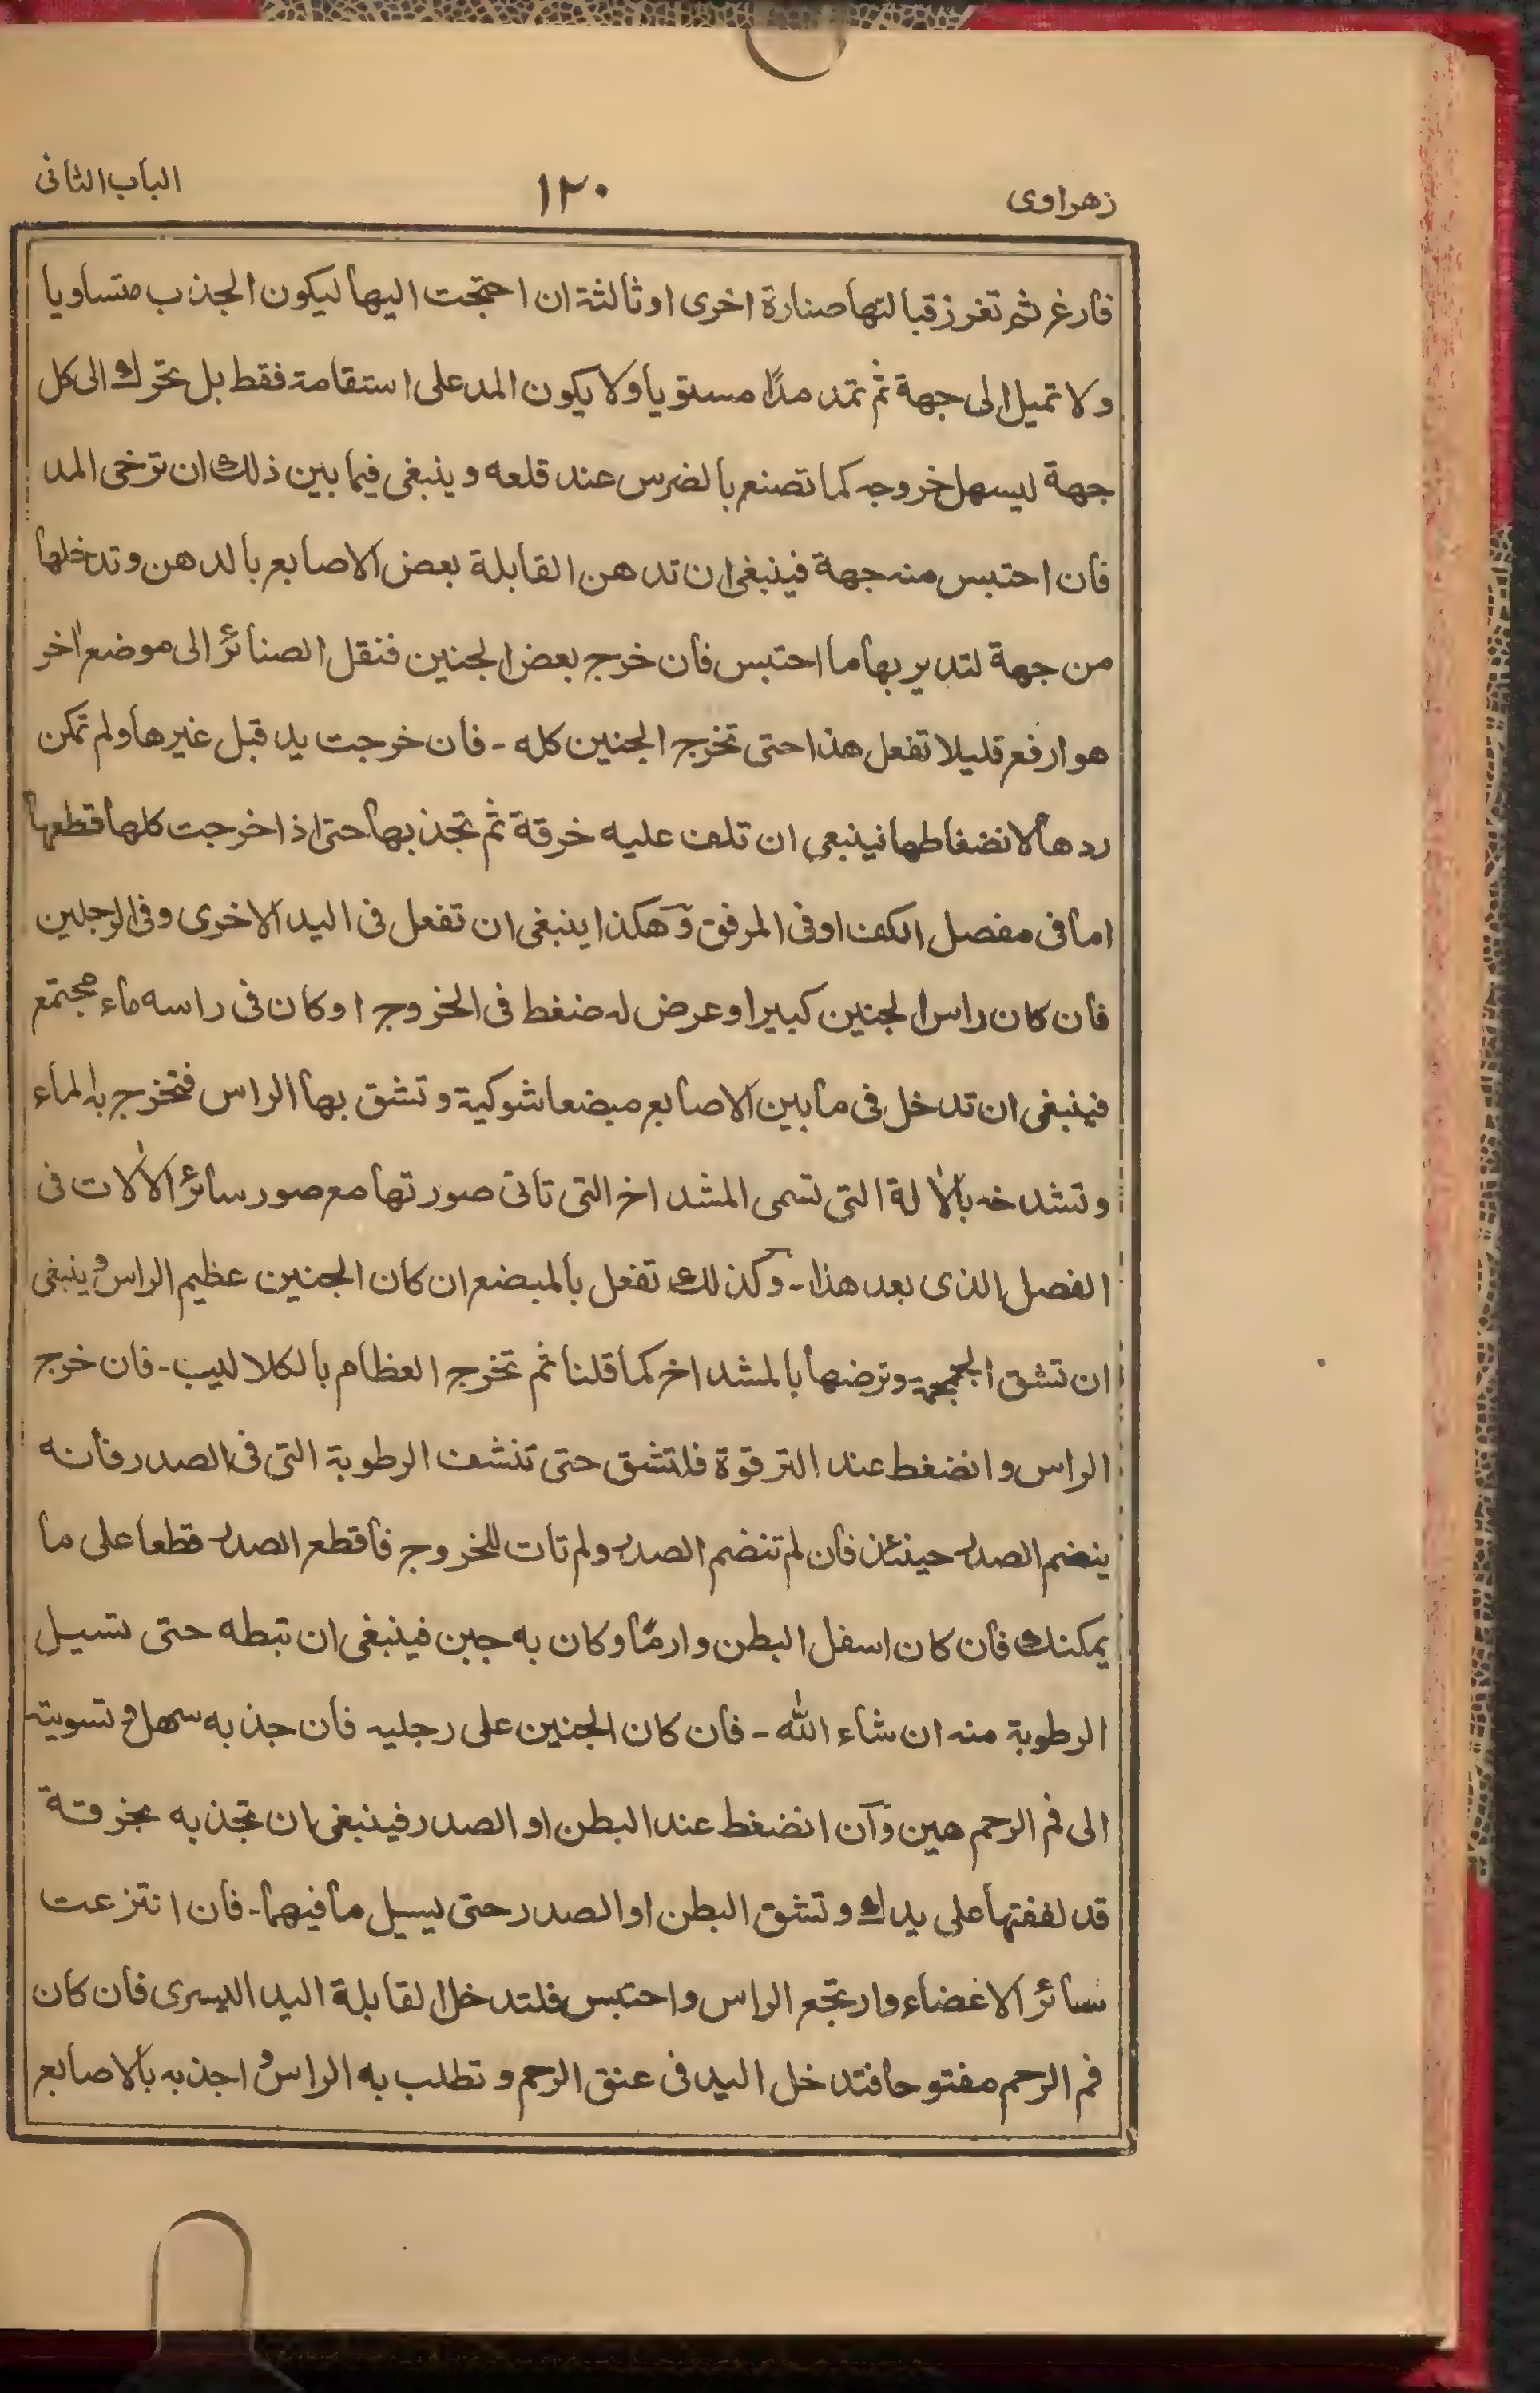 زهراوى ١٢٠ الباب الثانى
فارغ ثم تغرز قبالتها صنارة اخرى او ثالثة ان احتجت اليها ليكون الجذب متساويا
ولا تميل الى جهة ثم تمد مدًا مستويا ولا يكون المد على استقامة فقط بل تحرك الى كل
جهة ليسهل خروجه كما تصنع بالضرس عند قلعه وينبغى فيما بين ذلك ان ترخى المد
فان احتبس منه جهة فينبغى ان تدهن القابلة بعض الاصابع بالدهن وتدخلها
من جهة لتدير بها ما احتبس فان خرج بعض الجنين فنقل الصنائر الى موضع اٰخر
هو ارفع قليلا تفعل هذا حتى تخرج الجنين كله - فان خرجت يد قبل غيرها ولم تمكن
ردها لانضغاطها فينبغى ان تلف عليه خرقة ثم تجذبها حتى اذا خرجت كلها قطعها
اما فى مفصل الكف او فى المرفق وهكذا ينبغى ان تفعل فى اليد الاخرى وفى الرجلين
فان كان راس الجنين كبيرا وعرض له ضغط فى الخروج او كان فى راسه ماء مجتمع
فينبغى ان تدخل فى ما بين الاصابع مبضعا شوكية وتشق بها الراس فتخرج به الماء
وتشدخه بالاٰلة التى تسمى المشداخ التى تاتى صورتها مع صور سائر الاٰلات فى
الفصل الذى بعد هذا - وكذلك تفعل بالمبضع ان كان الجنين عظيم الراس وينبغى
ان تشق الجمجمة وترضها بالمشداخ كما قلنا ثم تخرج العظام بالكلاليب - فان خرج
الراس وانضغط عند الترقوة فلتشق حتى تنشف الرطوبة التى فى الصدر فانه
ينضم الصدر حينئذ فان لم تنضم الصدر ولم تات للخروج فاقطع الصدر قطعا على ما
يمكنك فان كان اسفل البطن وارمًا وكان به جبن فينبغى ان تبطه حتى تسيل
الرطوبة منه ان شاء الله - فان كان الجنين على رجليه فان جذبه سهل وتسويته
الى فم الرحم هين وآن انضغط عند البطن او الصدر فينبغى ان تجذبه بخرقة
قد لففتها على يدك وتشق البطن او الصدر حتى يسيل ما فيهما - فان انتزعت
سائر الاغضاء وارتجع الراس واحتبس فلتدخل القابلة اليد اليسرى فان كان
فم الرحم مفتوحا فتدخل اليد فى عنق الرحم وتطلب به الراس واجذبه بالاصابع